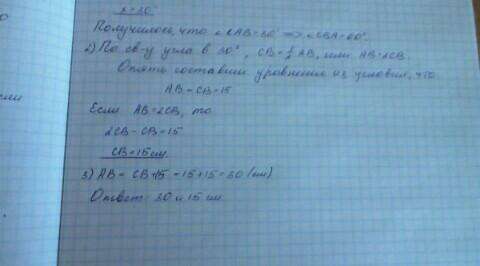 x=30
Получилось, что ∠CAB=30 => ∠CBA=60°.
2) По св-у угла в 30°, CB=½AB, или AB=2CB.
Опять составим уравнение из условия, что
AB-CB=15
Если AB=2CB, то
2CB-CB=15
CB=15см
3) AB= CB+15 =15+15=30 (см)
Ответ: 30 и 15 см